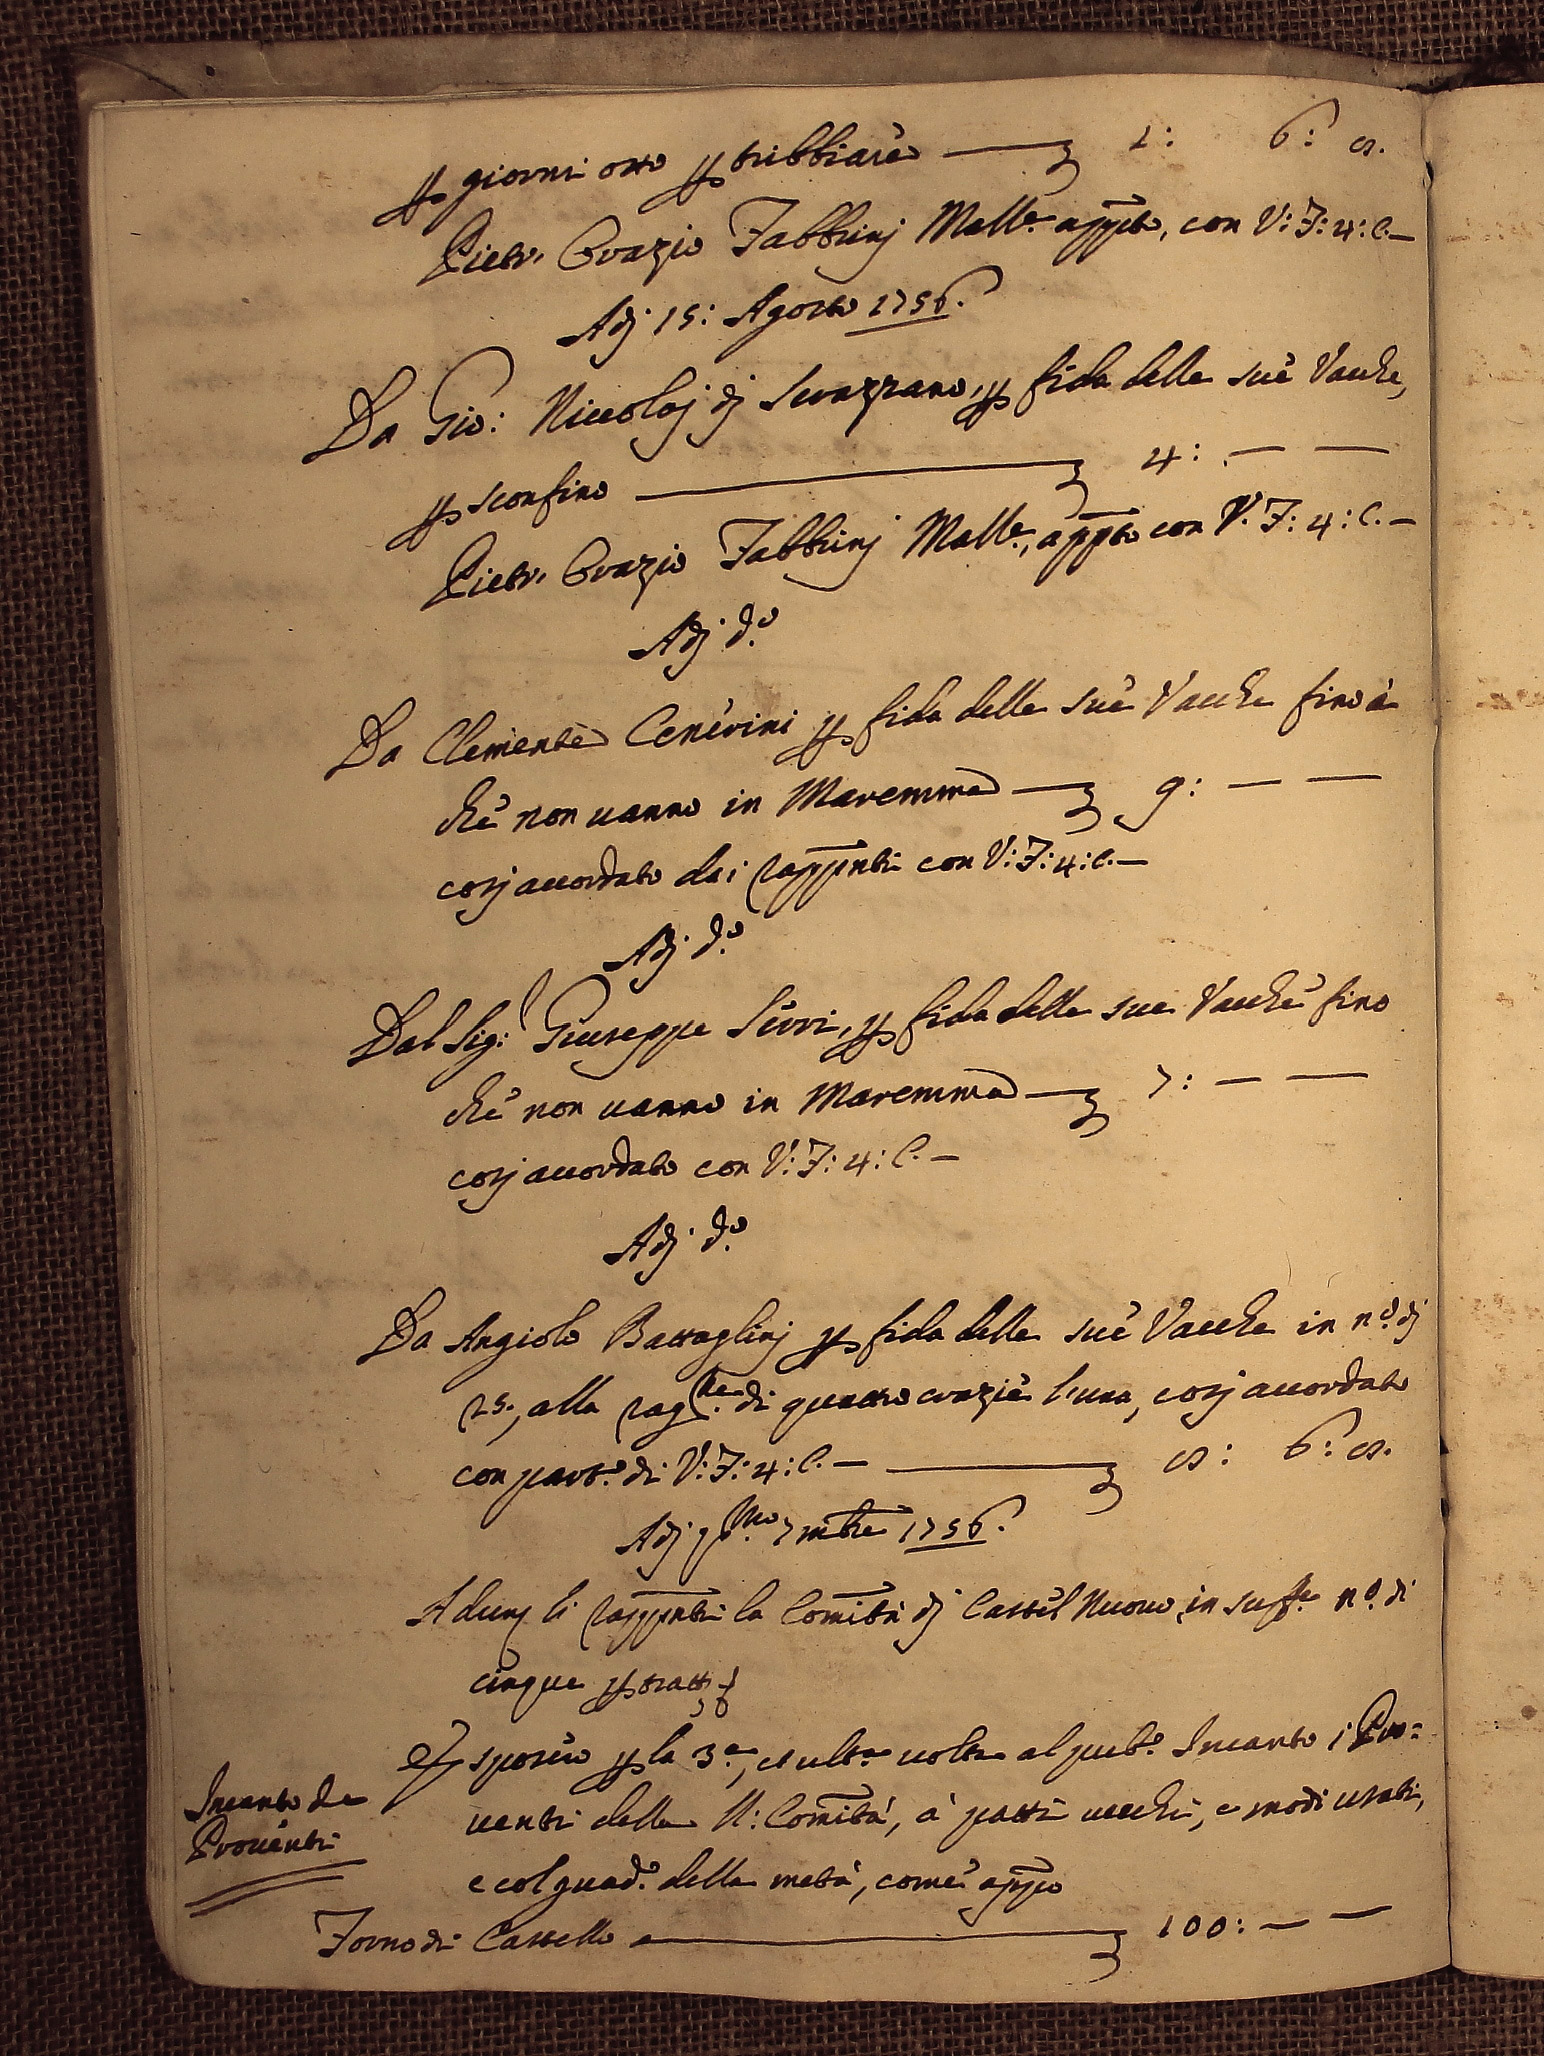 p giorni otto p tribbiare 1: 6: 8.
Pietr. Orazio Fabbrinj Mall.e appto, con V: F: 4: C.—
Adj 15: Agosto 1756.
Da Gio: Niccolaj dj Scvazzano, p fida delle sue Vacche,
p sconfino 4: — —
Pietr. Orazio Fabbrinj Mall.e, appto con V. F: 4: C.—
Adj d.o
Da Clemente Cenerini p fida delle sue Vacche fino à
che non vanno in Maremma 9: — —
cosj accordato dai rapp.nti con V: F: 4: C.—
Adj d.o
Dal Sig.r Giuseppe Serri, p fida delle sue Vacche fino
che non vanno in Maremma 7: — —
cosj accordato con V: F: 4: C.—
Adj d.o
Da Angiolo Battaglinj p fida delle sue Vacche in n.o dj
25., alla rag.ne di quattro crazie l'una, cosj accordato
con part.o di V: F: 4: C.— 8: 6: 8.
Adj p.mo 7mbre 1756.
Adunj li rapp.nti la Comità dj Castel Nuovo in suff.e n.o di
cinque p tratt.
Esposero p la 3.a, et ult.a volta al pub.o Incanto i Pro=
venti della N: Comità, à patti vecchi, e modi usati,
e col guad.o della metà, come app.o
Incanto de
Proventi
Forno di Castello 100: — —